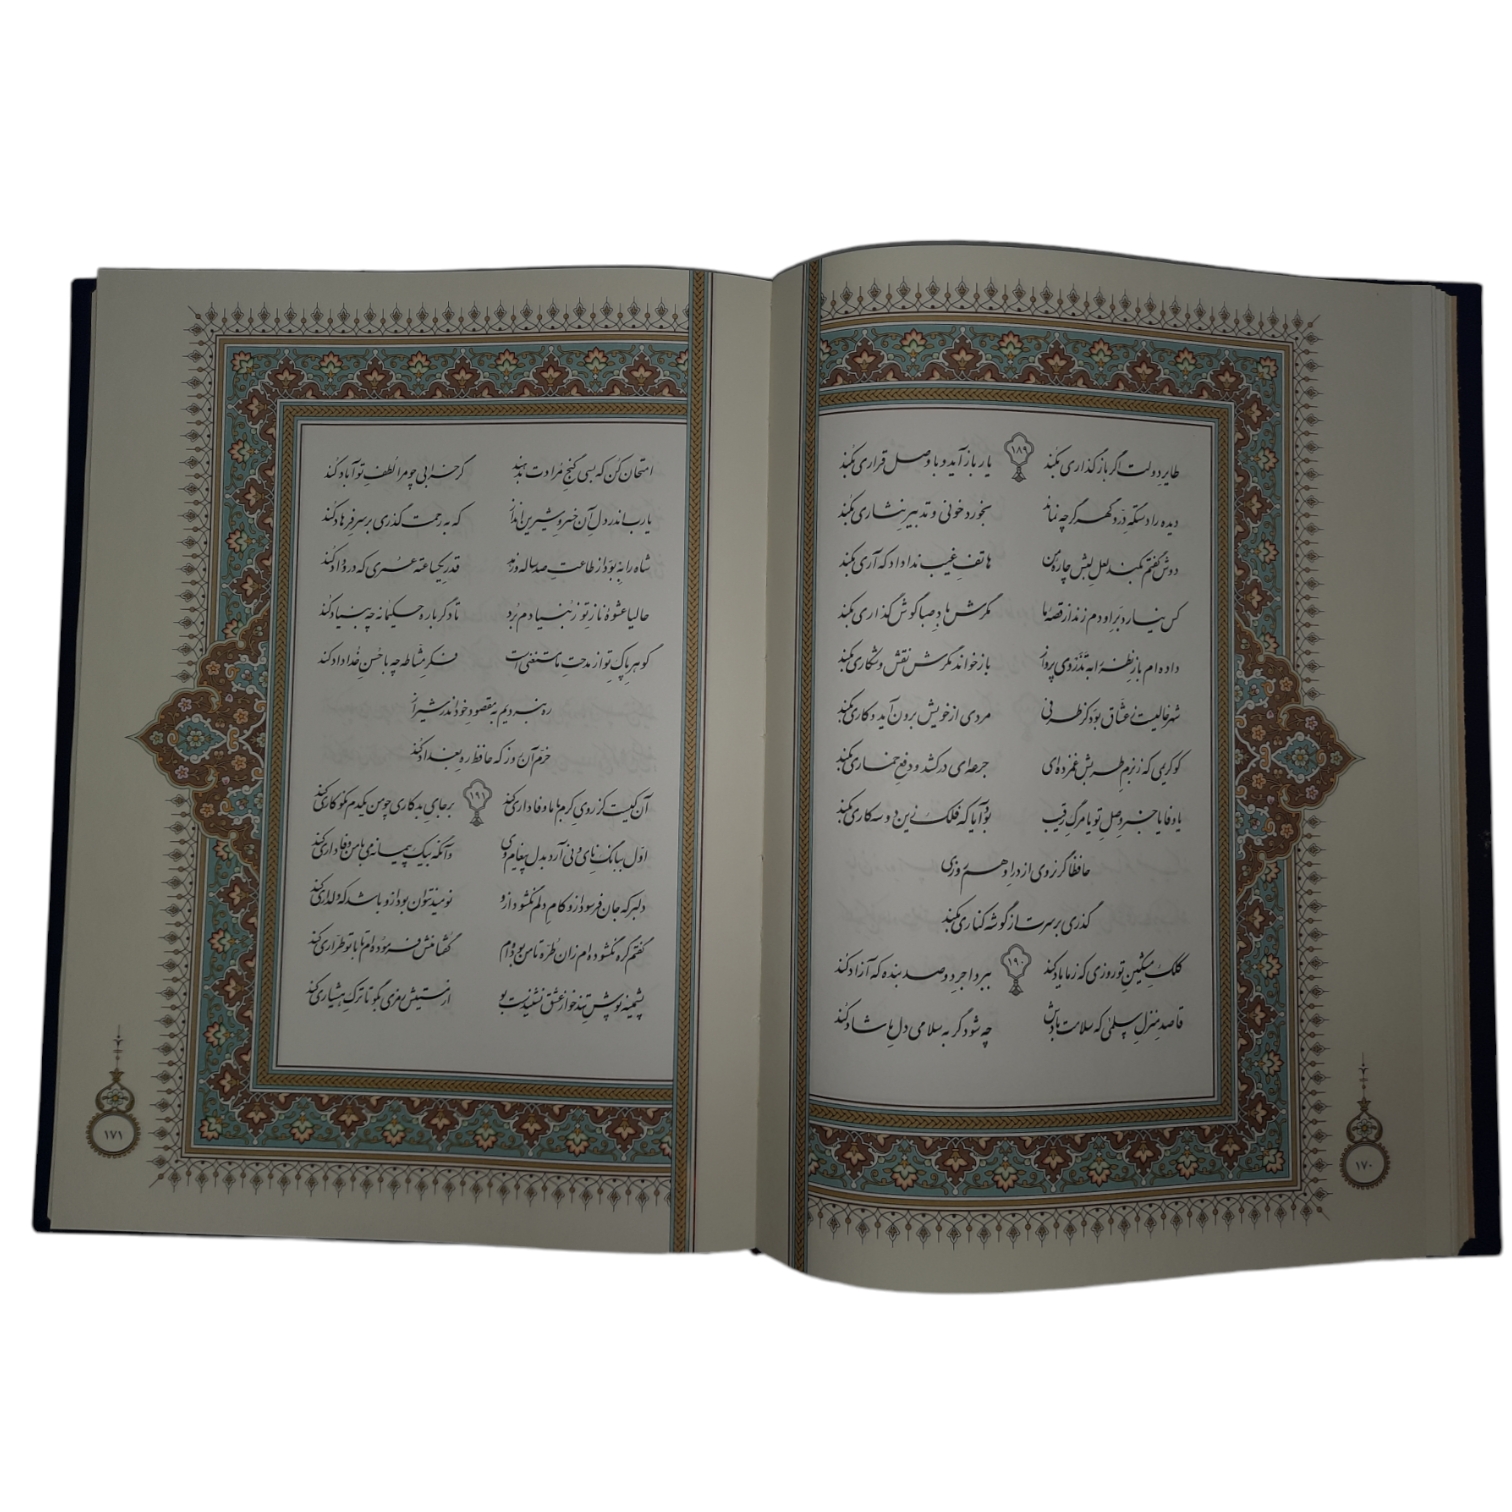 طایر دولت اگر باز گذاری بکند ۱۸۹ یار باز آید و با وصل قراری بکند
دیده را دستگه دُر و گهر گرچه نماند بخورد خونی و تدبیر نثاری بکند
دوش گفتم بکند لعل لبش چاره من هاتف غیب ندا داد که آری بکند
کس نیارد بر او دم زند از قصه ما مگرش باد صبا گوش گذاری بکند
داده‌ام باز نظر را به تذروی پرواز باز خواند مگرش نقش و شکاری بکند
شهر خالیست ز عشاق بود کز طرفی مردی از خویش برون آید و کاری بکند
کو کریمی که ز بزم طربش غمزده‌ای جرعه‌ای درکشد و دفع خماری بکند
یا وفا یا خبر وصل تو یا مرگ رقیب بود آیا که فلک زین دو سه کاری بکند
حافظا گر نروی از در او هم روزی
گذری بر سرت از گوشه کناری بکند
کلک مشکین تو روزی که ز ما یاد کند ۱۹۰ ببرد اجر دو صد بنده که آزاد کند
قاصد منزل سلمی که سلامت بادش چه شود گر به سلامی دل ما شاد کند
۱۷۰
امتحان کن که بسی گنج مرادت بدهند گر خرابی چو مرا لطف تو آباد کند
یا رب اندر دل آن خسرو شیرین انداز که به رحمت گذری بر سر فرهاد کند
شاه را به بود از طاعت صد ساله و زهد قدر یکساعته عمری که درو داد کند
حالیا عشوه ناز تو ز بنیادم برد تا دگر باره حکیمانه چه بنیاد کند
گوهر پاک تو از مدحت ما مستغنی است فکر مشاطه چه با حسن خداداد کند
ره نبردیم به مقصود خود اندر شیراز
خرم آن روز که حافظ ره بغداد کند
آن کیست کز روی کرم با ما وفاداری کند ۱۹۱ بر جای بدکاری چو من یکدم نکوکاری کند
اول ببانگ نای و نی آرد بدل پیغام وی وانگه بیک پیمانه می با من وفاداری کند
دلبر که جان فرسود ازو کام دلم نگشود ازو نومید نتوان بود ازو باشد که دلداری کند
گفتم گره نگشوده‌ام زان طره تا من بوده‌ام گفتا منش فرموده‌ام تا با تو طراری کند
پشمینه پوش تندخو از عشق نشنیدست بو از مستیش رمزی بگو تا ترک هشیاری کند
۱۷۱